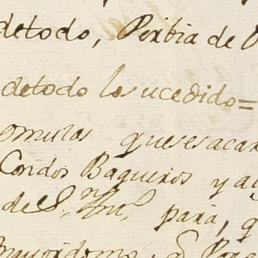 detodo, Perbia de
detodo lo sucedido=
omulas quesesacar
Condos Baqueros y a
de S.n Ant.o para, q